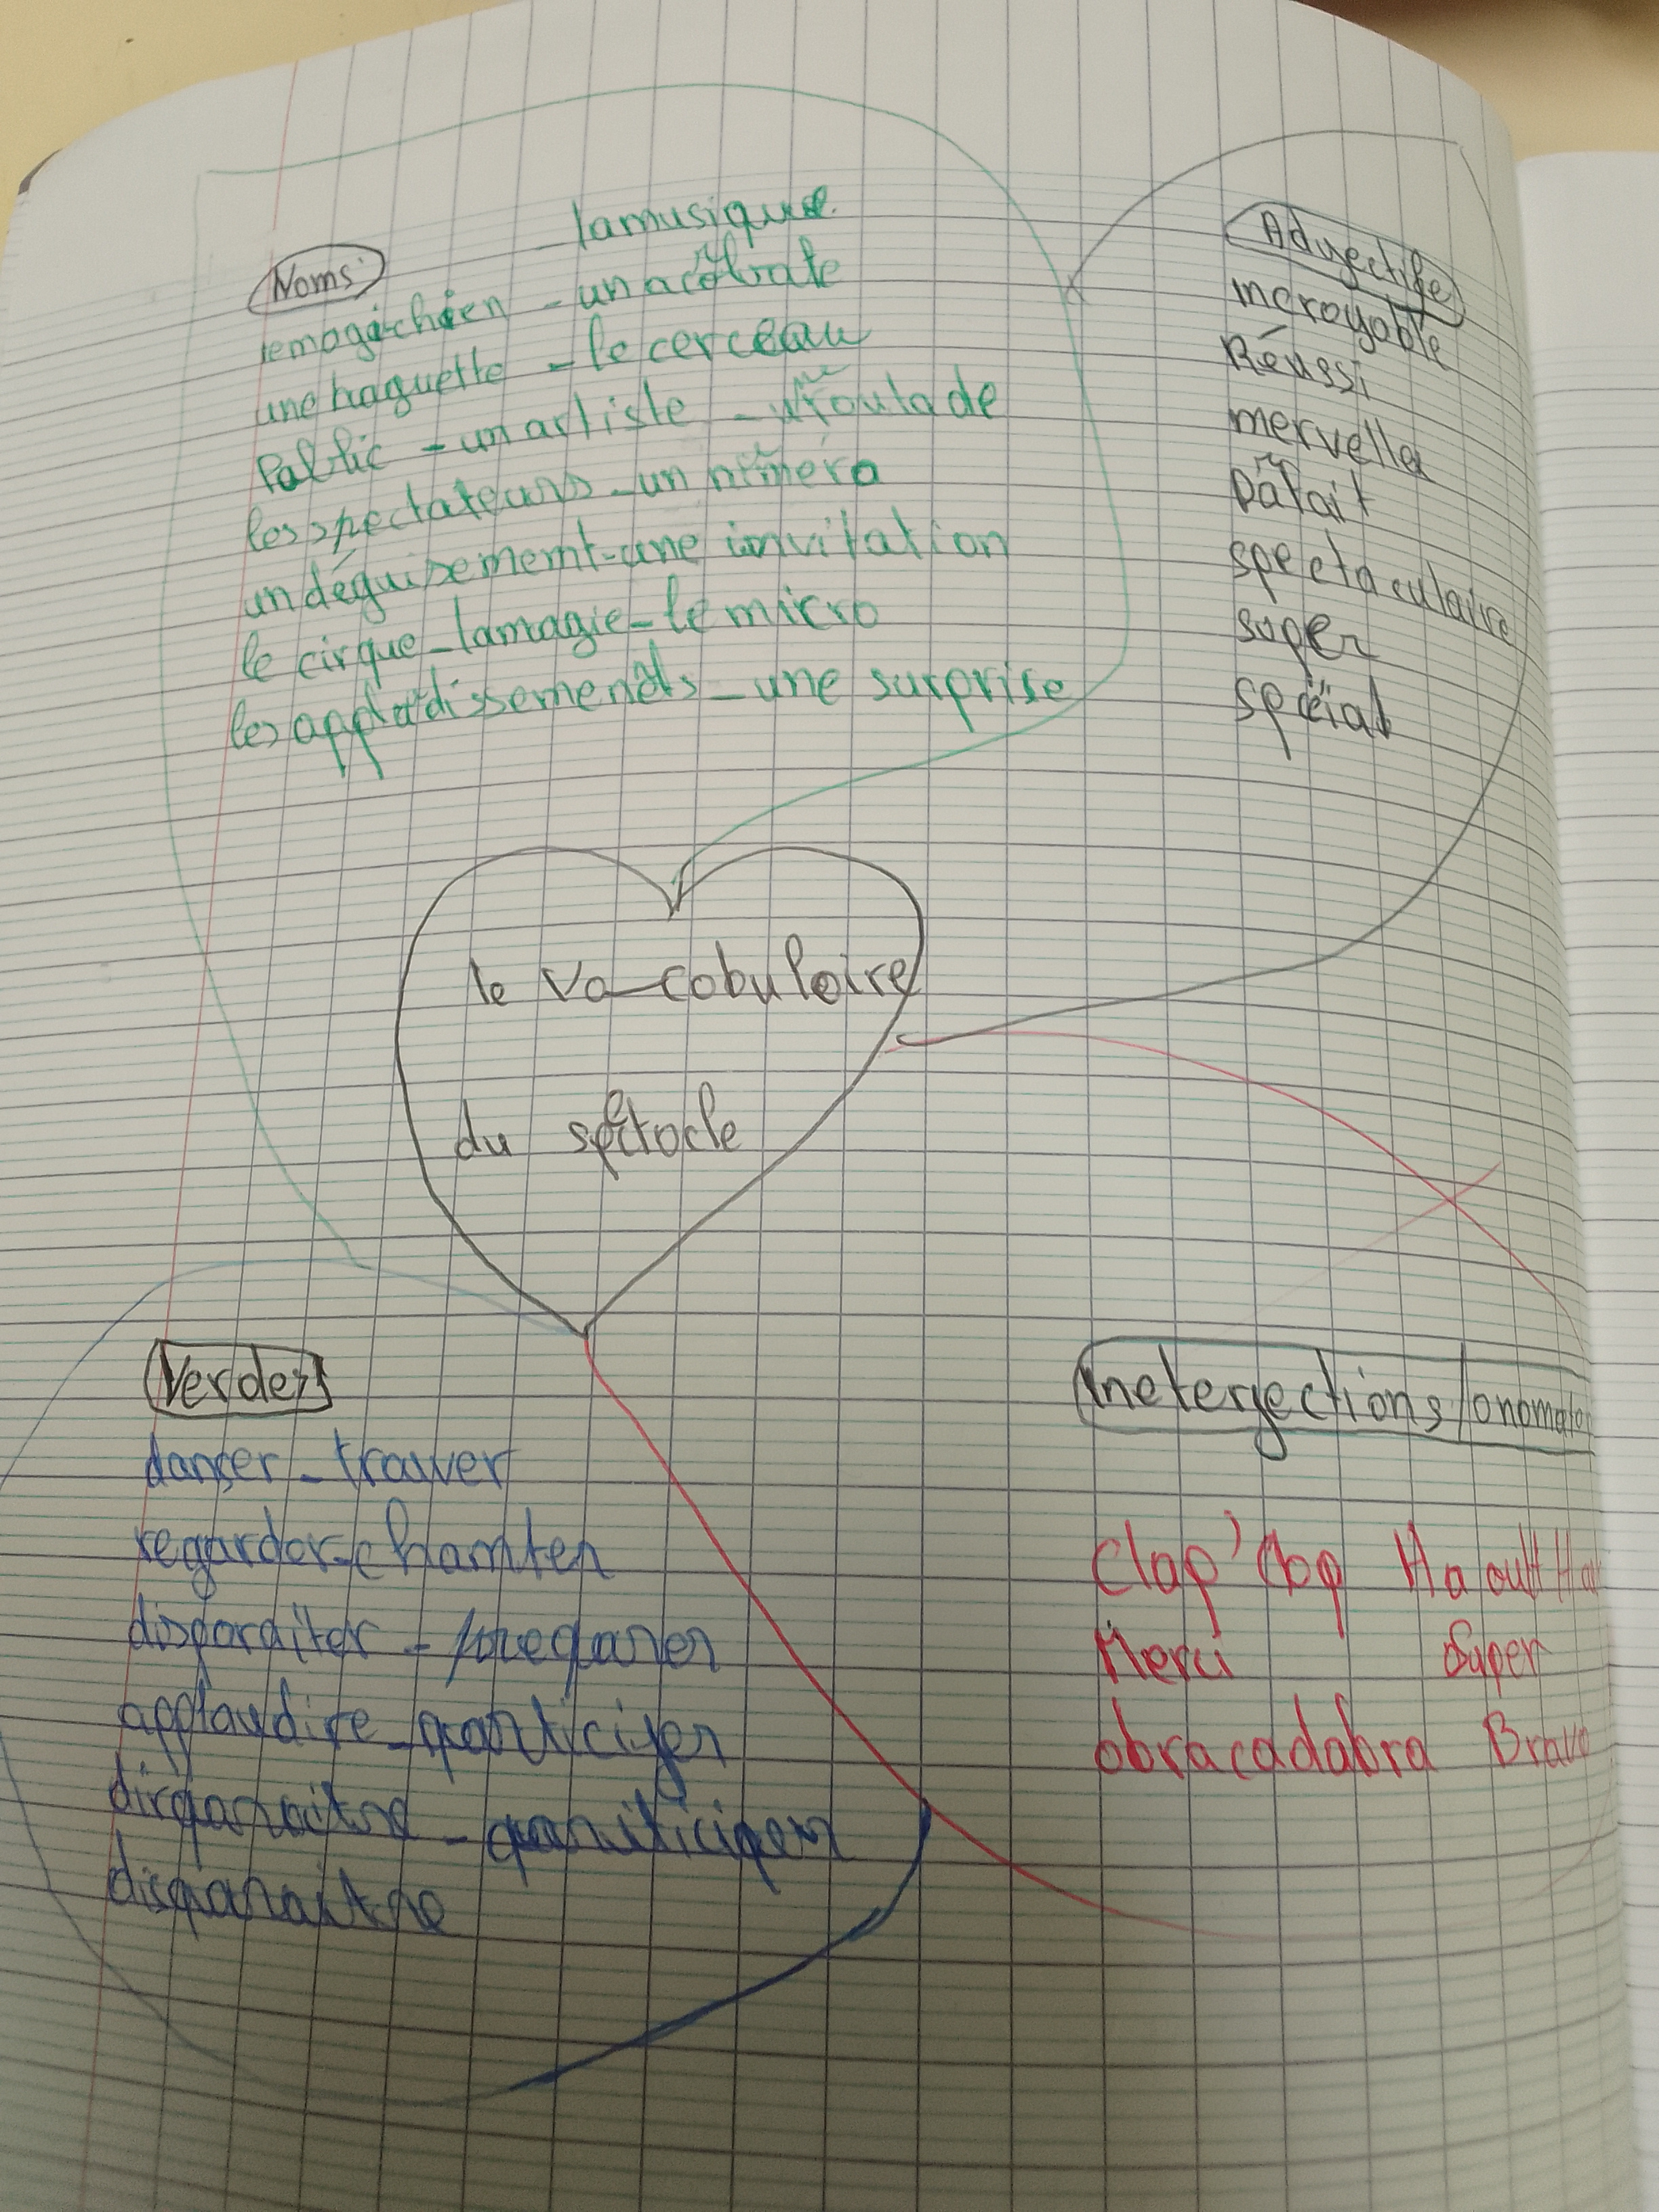 Noms
lamusique
lemagichien - un acobrate
une baguette - le cerceau
Public - un artiste - roulade
les spectateurs - un numéro
un déguisement - une invitation
le cirque - lamagie - le micro
les applaudissements - une surprise
Adyectifs
incroyable
Réussi
mervelle
Pafait
spectaculaire
super
spécial
le vo-cobuloire
du spetocle
Verdes
danser - trouver
regarder - chamter
disparaiter - preparer
applaudire - participer
disparaitre - participer
disparaitre
inetergections / onomato
Clap' Clap
Merci Super
abracadabra Bravo